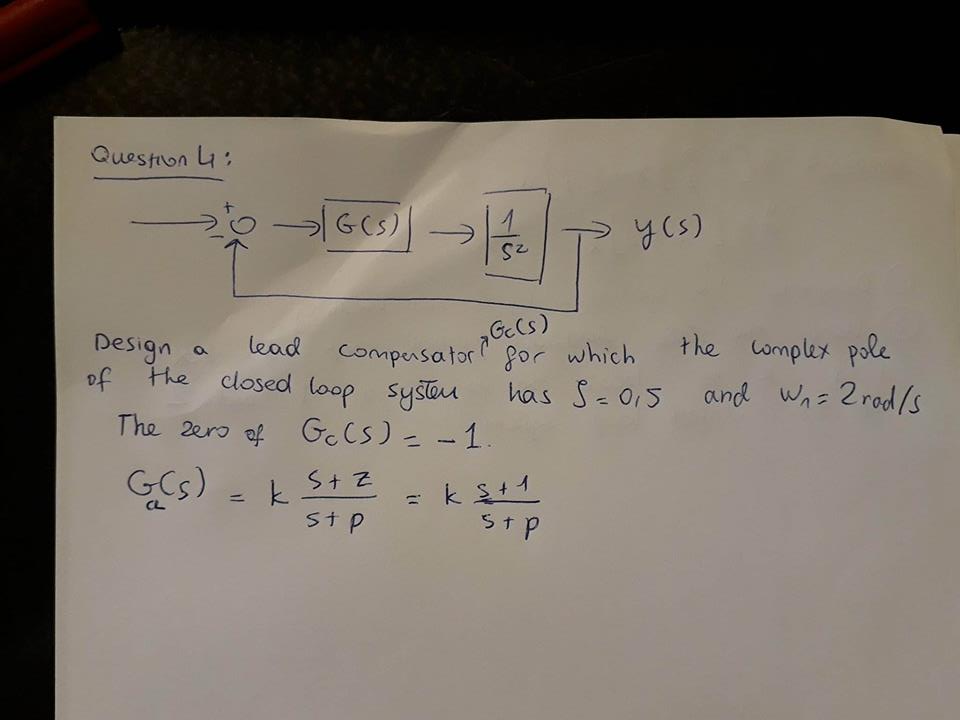 Question 4:
+ - G(s) 1/s² y(s)
Gc(s)
Design a lead compensator for which the complex pole
of the closed loop system has ζ = 0,5 and wn = 2 rad/s
The zero of Gc(s) = -1.
G(s) = k (s+z)/(s+p) = k (s+1)/(s+p)